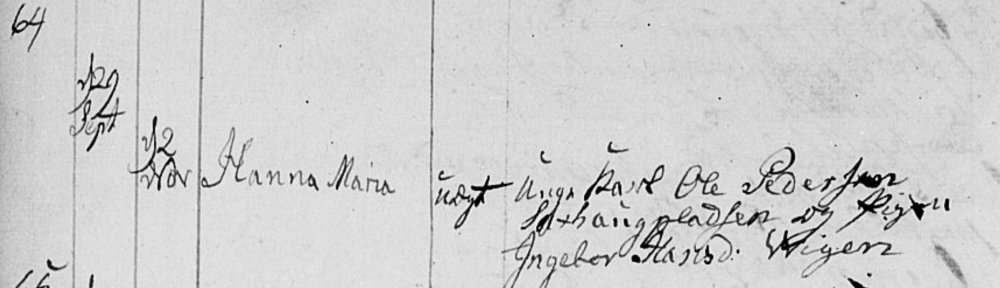 64
d 29
Sept
d 2
Nov Hanna Maria uægt Unge Karl Ole Pedersen
Saxhaugpladsen og Pigen
Ingebor Hansd: Wigen